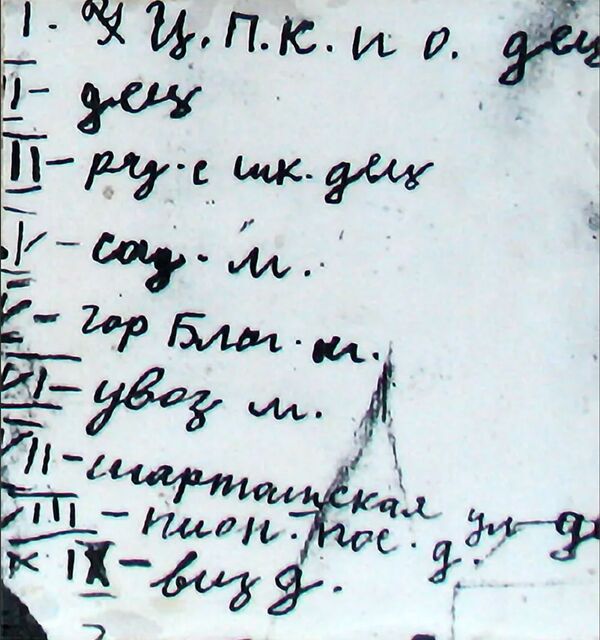 I. Ц.П.К. и о. дец
II - дец
III - ряд. с шк. дец
IV - сад. м.
V - гор Благ. м.
VI - увоз м.
VII - шарташская ул д
VIII - пион. пос. д.
IX - виз д.